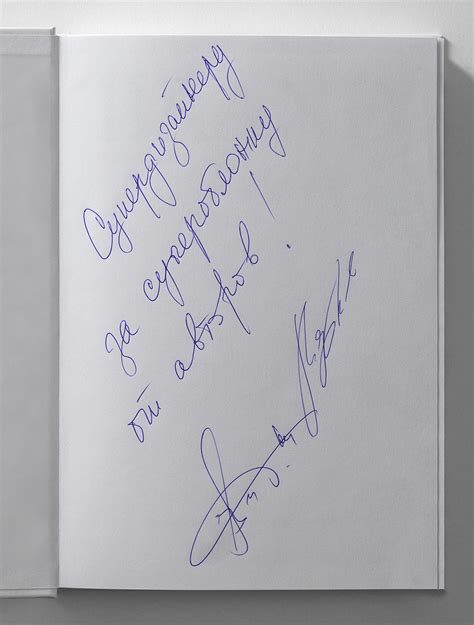 Супердизайнеру
за суперобложку
от авторов!